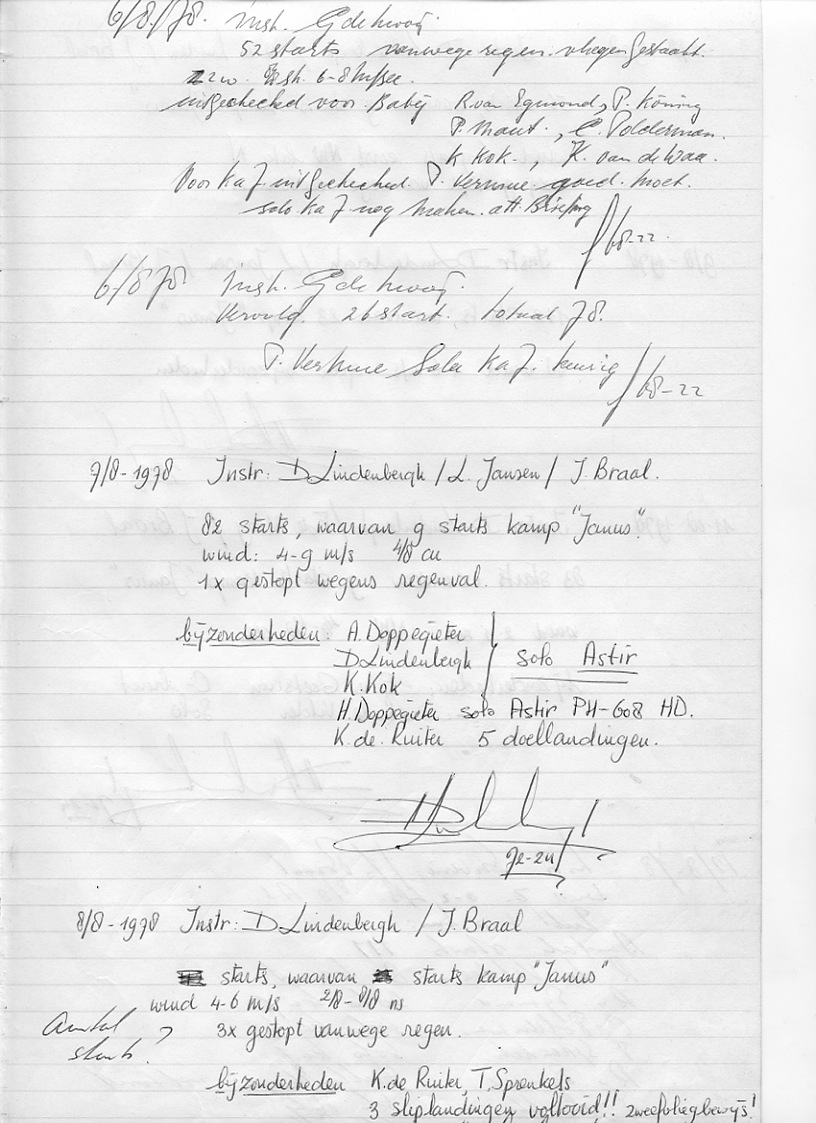 6/8/78. Inst. G de Kwaij.
52 starts vanwege regen. vliegen gestaakt.
ZZW. 6-8 m/sec.
uitgecheched voor. Babij R van Egmond, P. Köning
P. Mout., C. Polderman.
K Kok., K. van de Waa.
Voor Ka 7 uitgecheched. P. Vermue. goed. moet.
solo Ka 7 nog maken. att. Briefing
68-22
6/8 78 Inst. G de Kwaij.
Vervolg. 26 start. totaal 78.
P. Vermue Solo Ka 7. keurig
68-22
7/8-1978 Instr: D Lindenbergh / L. Jansen / J. Braal.
82 starts, waarvan 9 starts kamp "Janus".
wind: 4-9 m/s 4/8 cu
1x gestopt wegens regenval.
bijzonderheden: A. Doppegieter
D Lindenbergh
K. Kok
solo Astir
H. Doppegieter solo Astir PH-608 HD.
K. de Ruiter 5 doellandingen.
72-24
8/8-1978 Instr: D Lindenbergh / J. Braal
starts, waarvan starts kamp "Janus"
wind 4-6 m/s 2/8-8/8 ns
Aantal starts? 3x gestopt vanwege regen.
bijzonderheden K. de Ruiter, T. Sprenkels
3 sliplandingen voltooid!! zweefvliegbewijs!